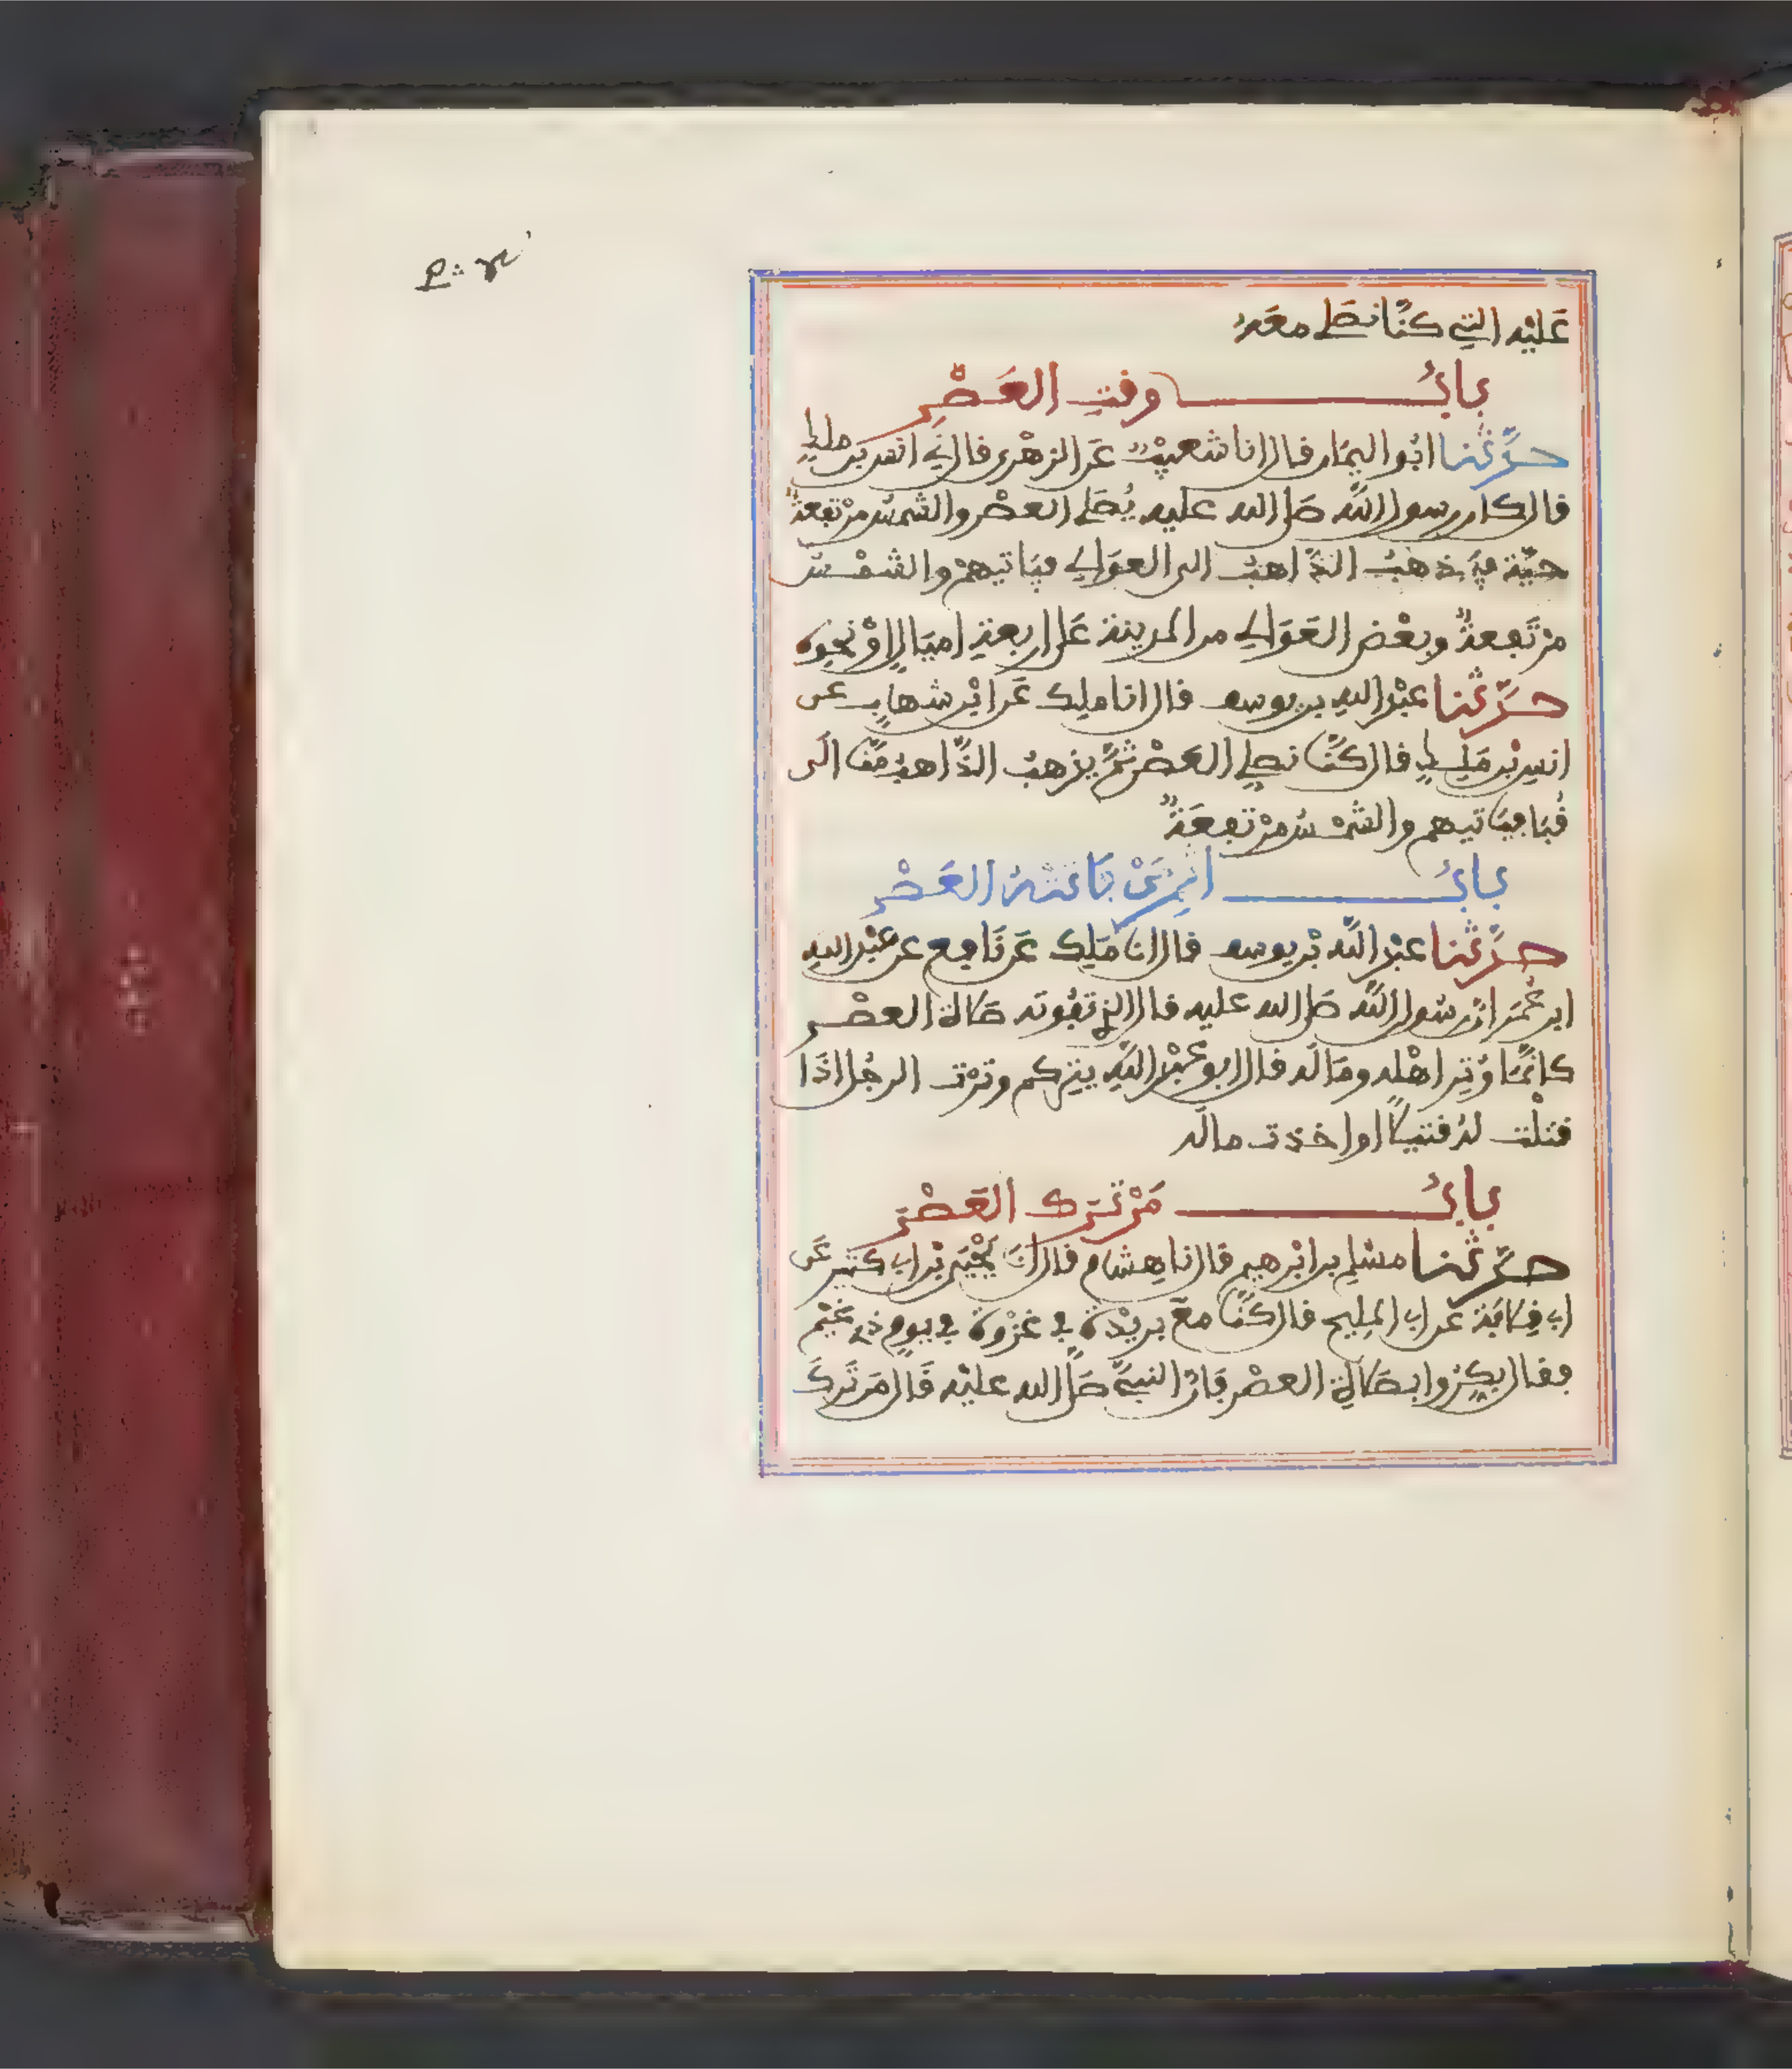 عَليْه التِي كنَّا نصَلِّي معَهُ
بابُ وقتِ العَصْرِ
حدَّثنا ابُو اليمَان قال انا شعيْبٌ عَن الزهْري قال نِي انس بن ملكٍ
قال كان رسول اللَّه صَلى الله عليه يُصَلي العصْر والشمسُ مرْتفعةٌ
حيَّة فيَذهبُ الذَّاهبُ الى العوَالِي فيَاتيهمْ والشمْسُ
مرْتَفعةٌ وبعْض العَوَالِي من المدينة عَلى اربعةِ اميَالٍ اوْ نحْوِه
حدَّثنا عبْد اللهِ بن يوسف قال انا ملِك عَن ابْن شهابٍ عن
انسِ بْن مَلِكٍ قال كنَّا نصلِي العَصْر ثمَّ يذهبُ الذَّاهبُ منَّا الَى
قُبَا فيَاتيهم والشمْسُ مرْتفعَةٌ
بابُ اثمِ مَنْ فَاتتْهُ العَصْر
حدَّثنا عبْد اللَّه بْن يوسف قال انا مَلِك عَن نَافع عن عبْد اللهِ
ابن عُمَر انَّ رسُول اللَّه صَلى الله عليه قال الذِي تفُوتُه صَلاة العصْر
كانَّمَا وُتِر اهْله ومَالَه قال ابو عبْد اللَّهِ يتِركم وترْت الرجُل اذَا
قتلْت لهُ قتيلًا او اخذت مالَه
بابُ مَنْ تَرَك العَصْرَ
حدَّثنا مسْلم بن ابْرهيم قال نا هِشام قال انَا يحْيَى بْن ابِي كثير عَن
ابِي قِلابَة عَن ابِي المَلِيح قال كنَّا معَ بريْدةَ فِي غزْوة فِي يومٍ ذِي غيْم
فقال بكِّرُوا بصَلاةِ العصْر فَانَّ النبيَّ صَلَّى الله عليْه قَال مَن تَرَكَ